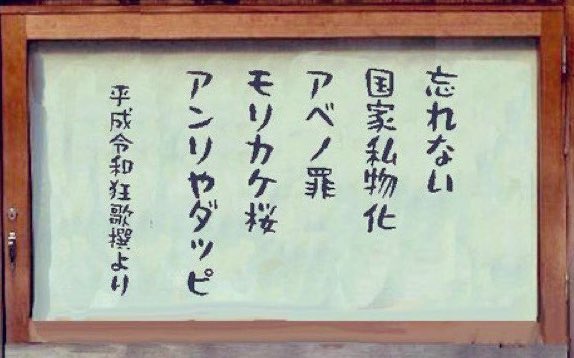 忘れない
国家私物化
アベノ罪
モリカケ桜
アンリやダッピ
平成令和狂歌撰より